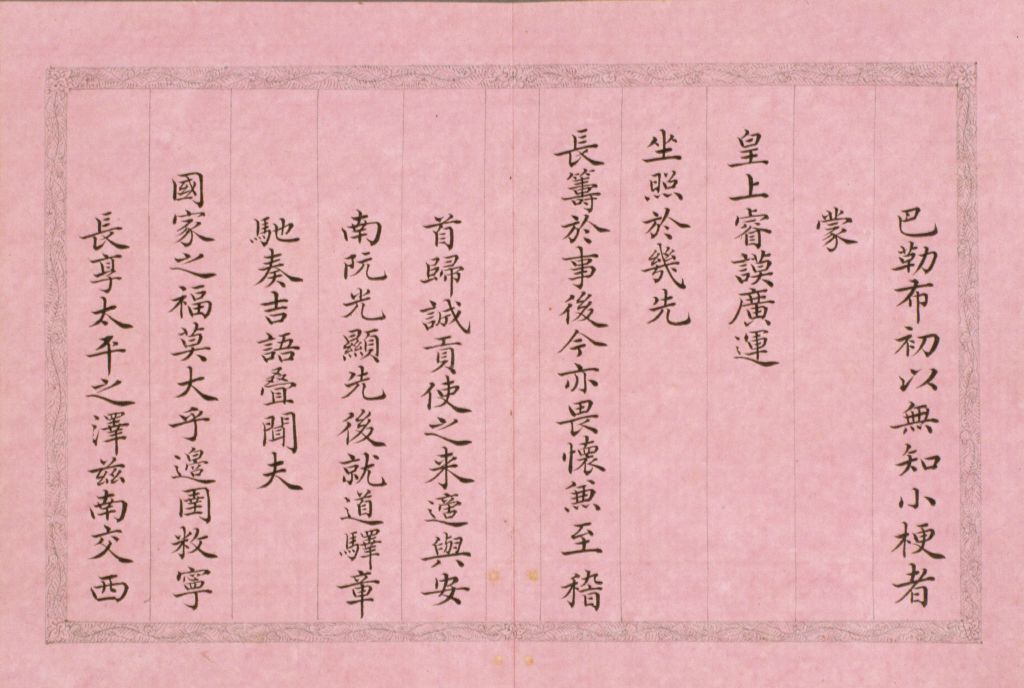 巴勒布初以無知小梗者
蒙
皇上睿謨廣運
坐照於幾先
長籌於事後今亦畏懐兼至稽
首歸誠貢使之来適與安
南阮光顯先後就道驛章
馳奏吉語疊聞夫
國家之福莫大乎邊圉敉寧
長享太平之澤兹南交西